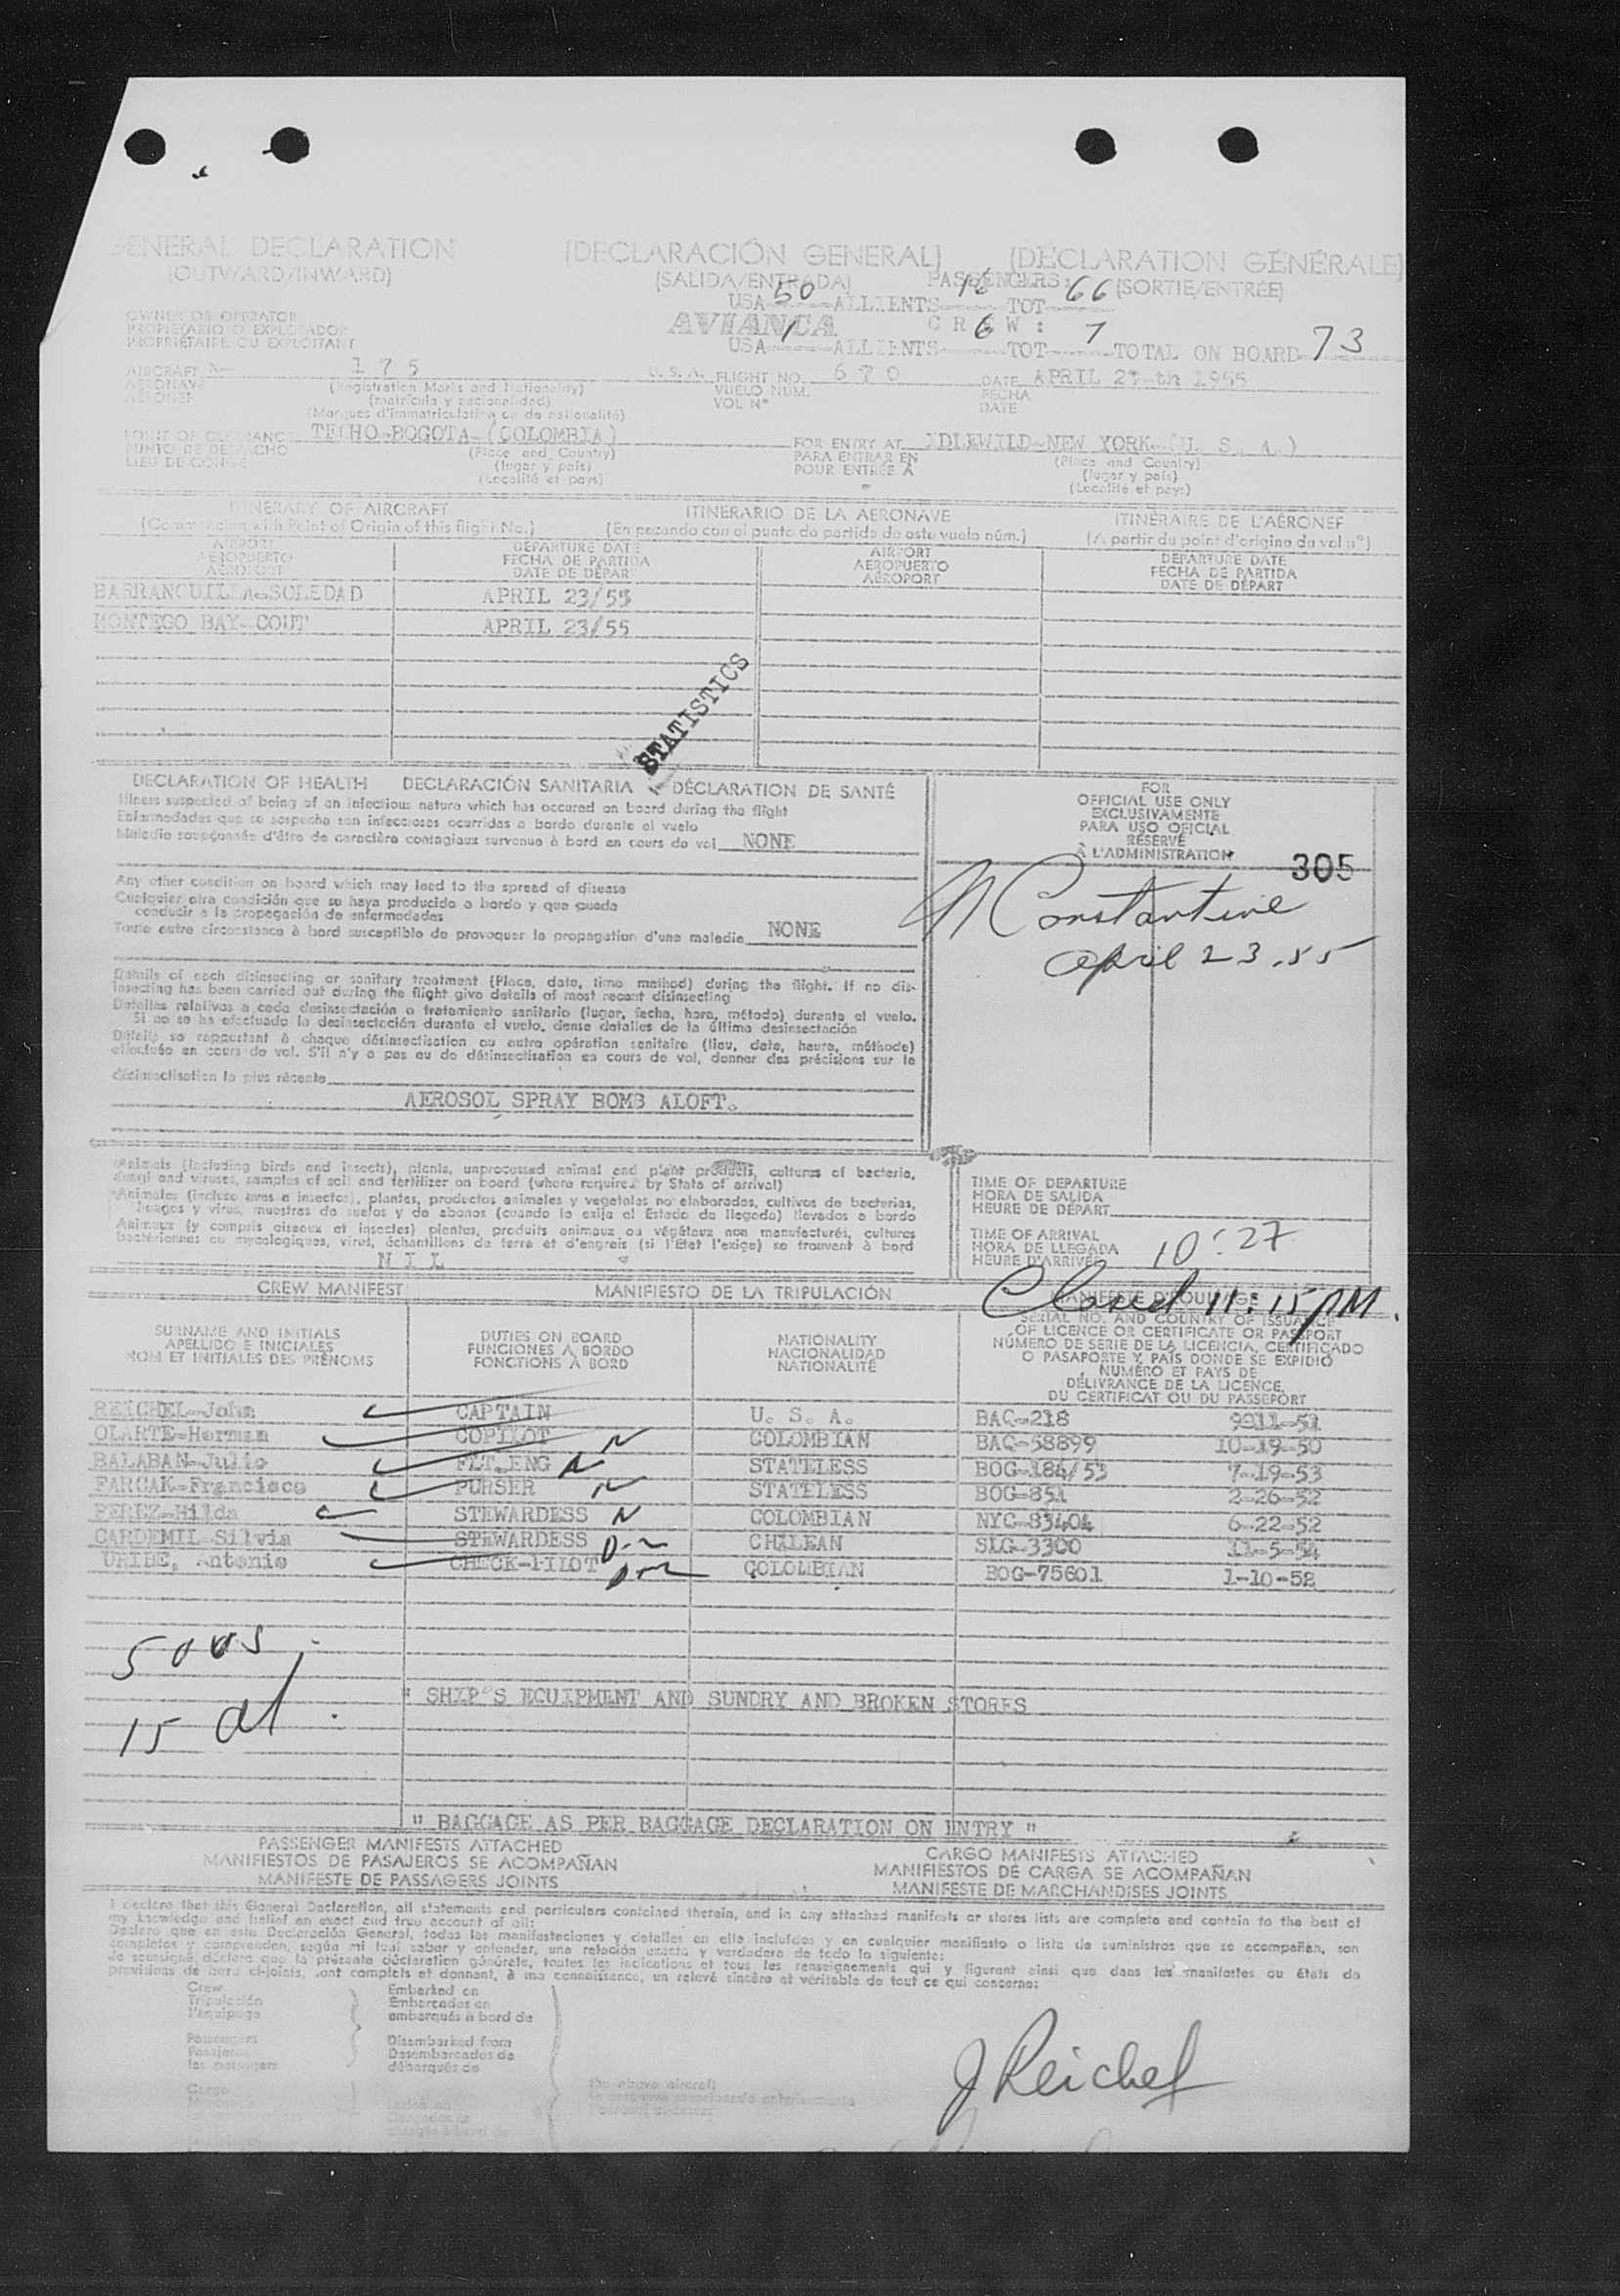 GENERAL DECLARATION (DECLARACIÓN GENERAL) (DÉCLARATION GÉNÉRALE)
(OUTWARD/INWARD) (SALIDA/ENTRADA) PASSENGERS: (SORTIE/ENTRÉE)
USA 50 ALLIENTS 16 TOT 66
OWNER OR OPERATOR AVIANCA CREW:
PROPIETARIO O EXPLOTADOR
PROPRIÉTAIRE OU EXPLOITANT USA 1 ALLIENTS 6 TOT 7 TOTAL ON BOARD 73
AIRCRAFT N- 175 U. S. A. FLIGHT NO. 670 DATE APRIL 1955
AERONAVE (Registration Marks and Nationality) VUELO NUM. FECHA
AÉRONEF (matrícula y nacionalidad) VOL Nº DATE
(Marques d'immatriculation ou de nationalité)
POINT OF CLEARANCE TECHO-BOGOTA-(COLOMBIA) FOR ENTRY AT IDLEWILD-NEW YORK-(U. S. A.)
PUNTO DE DESPACHO (Place and Country) PARA ENTRAR EN (Place and Country)
LIEU DE CONGÉ (lugar y país) POUR ENTRÉE À (lugar y país)
(Localité et pays) (Localité et pays)
ITINERARY OF AIRCRAFT ITINERARIO DE LA AERONAVE ITINÉRAIRE DE L'AÉRONEF
(Commencing with Point of Origin of this flight No.) (Empezando con el punto de partida de este vuelo núm.) (A partir du point d'origine du vol nº)
AIRPORT DEPARTURE DATE AIRPORT DEPARTURE DATE
AEROPUERTO FECHA DE PARTIDA AEROPUERTO FECHA DE PARTIDA
AÉROPORT DATE DE DÉPART AÉROPORT DATE DE DÉPART
BARRANQUILLA-SOLEDAD APRIL 23/55
MONTEGO BAY-COUT APRIL 23/55
STATISTICS
DECLARATION OF HEALTH DECLARACIÓN SANITARIA DÉCLARATION DE SANTÉ
Illness suspected of being of an infectious nature which has occured on board during the flight
Enfermedades que se sospecha son infecciosas ocurridas a bordo durante el vuelo
Maladie soupçonnée d'être de caractère contagieux survenue à bord en cours de vol NONE
FOR
OFFICIAL USE ONLY
EXCLUSIVAMENTE
PARA USO OFICIAL
RÉSERVÉ
À L'ADMINISTRATION
305
Any other condition on board which may lead to the spread of disease
Cualquier otra condición que se haya producido a bordo y que pueda
conducir a la propagación de enfermedades
Toute autre circonstance à bord susceptible de provoquer la propagation d'une maladie NONE
Constantine
April 23.55
Details of each disinsecting or sanitary treatment (Place, date, time method) during the flight. If no dis-
insecting has been carried out during the flight give details of most recent disinsecting
Detalles relativos a cada desinsectación o tratamiento sanitario (lugar, fecha, hora, método) durante el vuelo.
Si no se ha efectuado la desinsectación durante el vuelo, dense detalles de la última desinsectación
Détails se rapportant à chaque désinsectisation ou autre opération sanitaire (lieu, date, heure, méthode)
effectuée en cours de vol. S'il n'y a pas eu de désinsectisation en cours de vol, donner des précisions sur la
désinsectisation la plus récente
AEROSOL SPRAY BOMB ALOFT.
Animals (including birds and insects), plants, unprocessed animal and plant products, cultures of bacteria,
fungi and viruses, samples of soil and fertilizer on board (where required by State of arrival)
Animales (incluso aves e insectos), plantas, productos animales y vegetales no elaborados, cultivos de bacterias,
hongos y virus, muestras de suelos y de abonos (cuando lo exija el Estado de llegada) llevados a bordo
Animaux (y compris oiseaux et insectes) plantes, produits animaux ou végétaux non manufacturés, cultures
bactériennes ou mycologiques, virus, échantillons de terre et d'engrais (si l'État l'exige) se trouvant à bord
NIL
TIME OF DEPARTURE
HORA DE SALIDA
HEURE DE DÉPART
TIME OF ARRIVAL
HORA DE LLEGADA
HEURE D'ARRIVÉE 10:27
Closed 11:15 PM.
CREW MANIFEST MANIFIESTO DE LA TRIPULACIÓN MANIFESTE D'ÉQUIPAGE
SURNAME AND INITIALS
APELLIDO E INICIALES
NOM ET INITIALES DES PRÉNOMS
DUTIES ON BOARD
FUNCIONES A BORDO
FONCTIONS À BORD
NATIONALITY
NACIONALIDAD
NATIONALITÉ
SERIAL NO. AND COUNTRY OF ISSUANCE
OF LICENCE OR CERTIFICATE OR PASSPORT
NÚMERO DE SERIE DE LA LICENCIA, CERTIFICADO
O PASAPORTE Y PAÍS DONDE SE EXPIDIÓ
NUMÉRO ET PAYS DE
DÉLIVRANCE DE LA LICENCE,
DU CERTIFICAT OU DU PASSEPORT
REICHEL-John CAPTAIN U. S. A. BAQ-218 9011-51
OLARTE-Herman COPILOT N COLOMBIAN BAQ-58899 10-19-50
BALABAN-Julio FLT.ENG N STATELESS BOG-184/53 7-19-53
FARCAK-Francisco PURSER N STATELESS BOG-851 2-26-52
PEREZ-Hilda STEWARDESS N COLOMBIAN NYC-83404 6-22-52
CARDEMIL-Silvia STEWARDESS CHILEAN SLG-3300 11-5-54
URIBE, Antonio CHECK-PILOT COLOMBIAN BOG-75601 1-10-52
50 US
15 al
" SHIP'S EQUIPMENT AND SUNDRY AND BROKEN STORES
" BAGGAGE AS PER BAGGAGE DECLARATION ON ENTRY "
PASSENGER MANIFESTS ATTACHED CARGO MANIFESTS ATTACHED
MANIFIESTOS DE PASAJEROS SE ACOMPAÑAN MANIFIESTOS DE CARGA SE ACOMPAÑAN
MANIFESTE DE PASSAGERS JOINTS MANIFESTE DE MARCHANDISES JOINTS
I declare that this General Declaration, all statements and particulars contained therein, and in any attached manifests or stores lists are complete and contain to the best of
my knowledge and belief an exact and true account of all:
Declaro que en esta Declaración General, todas las manifestaciones y detalles en ella incluídos y en cualquier manifiesto o lista de suministros que se acompañan, son
completos y comprenden, según mi leal saber y entender, una relación exacta y verdadera de todo lo siguiente:
Je soussigné déclare que la présente déclaration générale, toutes les indications et tous les renseignements qui y figurent ainsi que dans les manifestes ou états de
provisions de bord ci-joints, sont complets et donnent, à ma connaissance, un relevé sincère et véritable de tout ce qui concerne:
Crew Embarked on
Tripulación Embarcados en
l'équipage embarqués à bord de
Passengers Disembarked from
Pasajeros Desembarcados de
les passagers débarqués de
Cargo the above aircraft
J Reichel